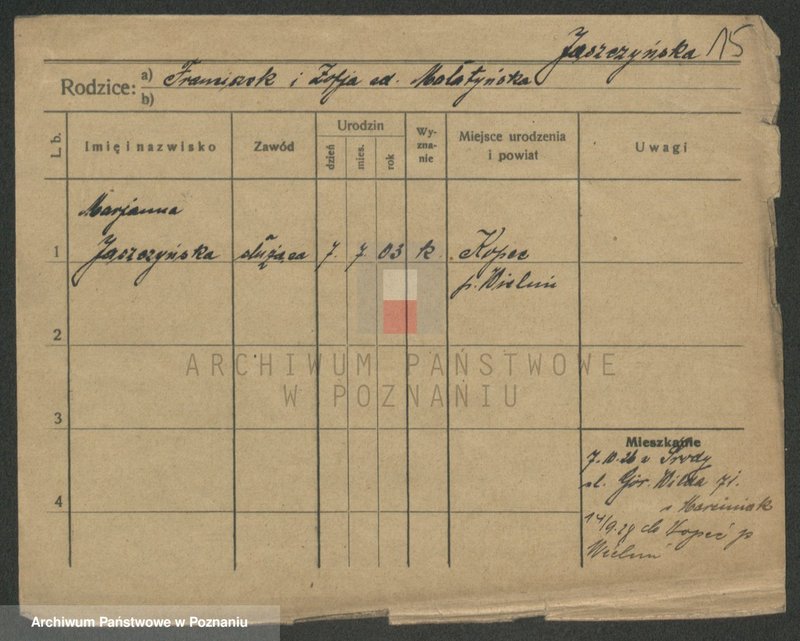 Jaszczyńska 15
Rodzice: a) Franciszek i Zofja
b)
L. b. Imię i nazwisko Zawód Urodzin dzień mies. rok Wyznanie Miejsce urodzenia i powiat Uwagi
Marjanna
1 Jaszczyńska służąca 7. 7. 03 k Kopec
p. Wieluń
2
ARCHIWUM PAŃSTWOWE
W POZNANIU
3
Mieszkanie
7.10.26 z Środy
ul. Gór. Wilda 71.
Marciniak
4
do Kopeć p
Wieluń
Archiwum Państwowe w Poznaniu